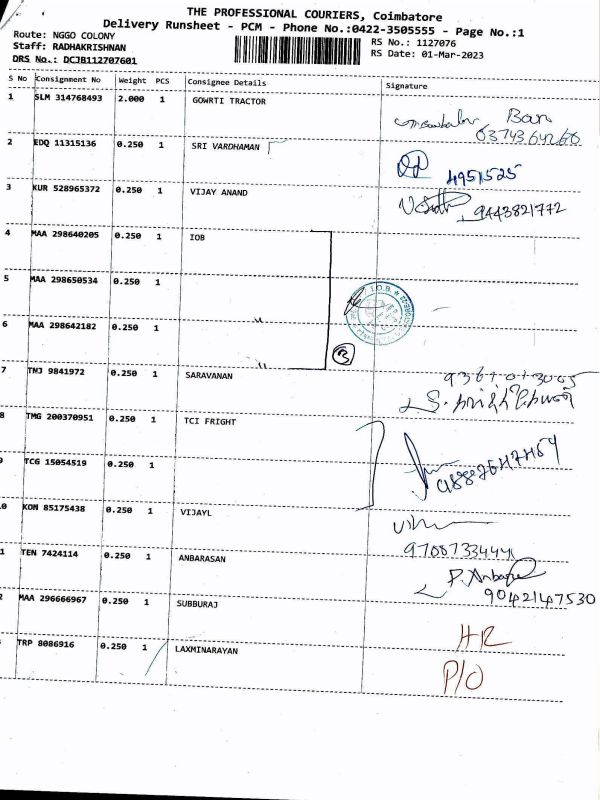 THE PROFESSIONAL COURIERS, Coimbatore
Delivery Runsheet - PCM - Phone No.:0422-3505555 - Page No.:1
Route: NGGO COLONY
Staff: RADHAKRISHNAN
DRS No.: DCJB112707601
RS No.: 1127076
RS Date: 01-Mar-2023
S No Consignment No Weight PCS Consignee Details Signature
1 SLM 314768493 2.000 1 GOWRTI TRACTOR
2 EDQ 11315136 0.250 1 SRI VARDHAMAN 4951525
3 KUR 528965372 0.250 1 VIJAY ANAND 9443821772
4 MAA 298640205 0.250 1 IOB
5 MAA 298650534 0.250 1
6 MAA 298642182 0.250 1
3
I.O.B.
7 TNJ 9841972 0.250 1 SARAVANAN
8 TMG 200370951 0.250 1 TCI FRIGHT
9 TCG 15054519 0.250 1
0 KON 85175438 0.250 1 VIJAYL
1 TEN 7424114 0.250 1 ANBARASAN
9042147530
2 MAA 296666967 0.250 1 SUBBURAJ
TRP 8086916 0.250 1 LAXMINARAYAN
P/O